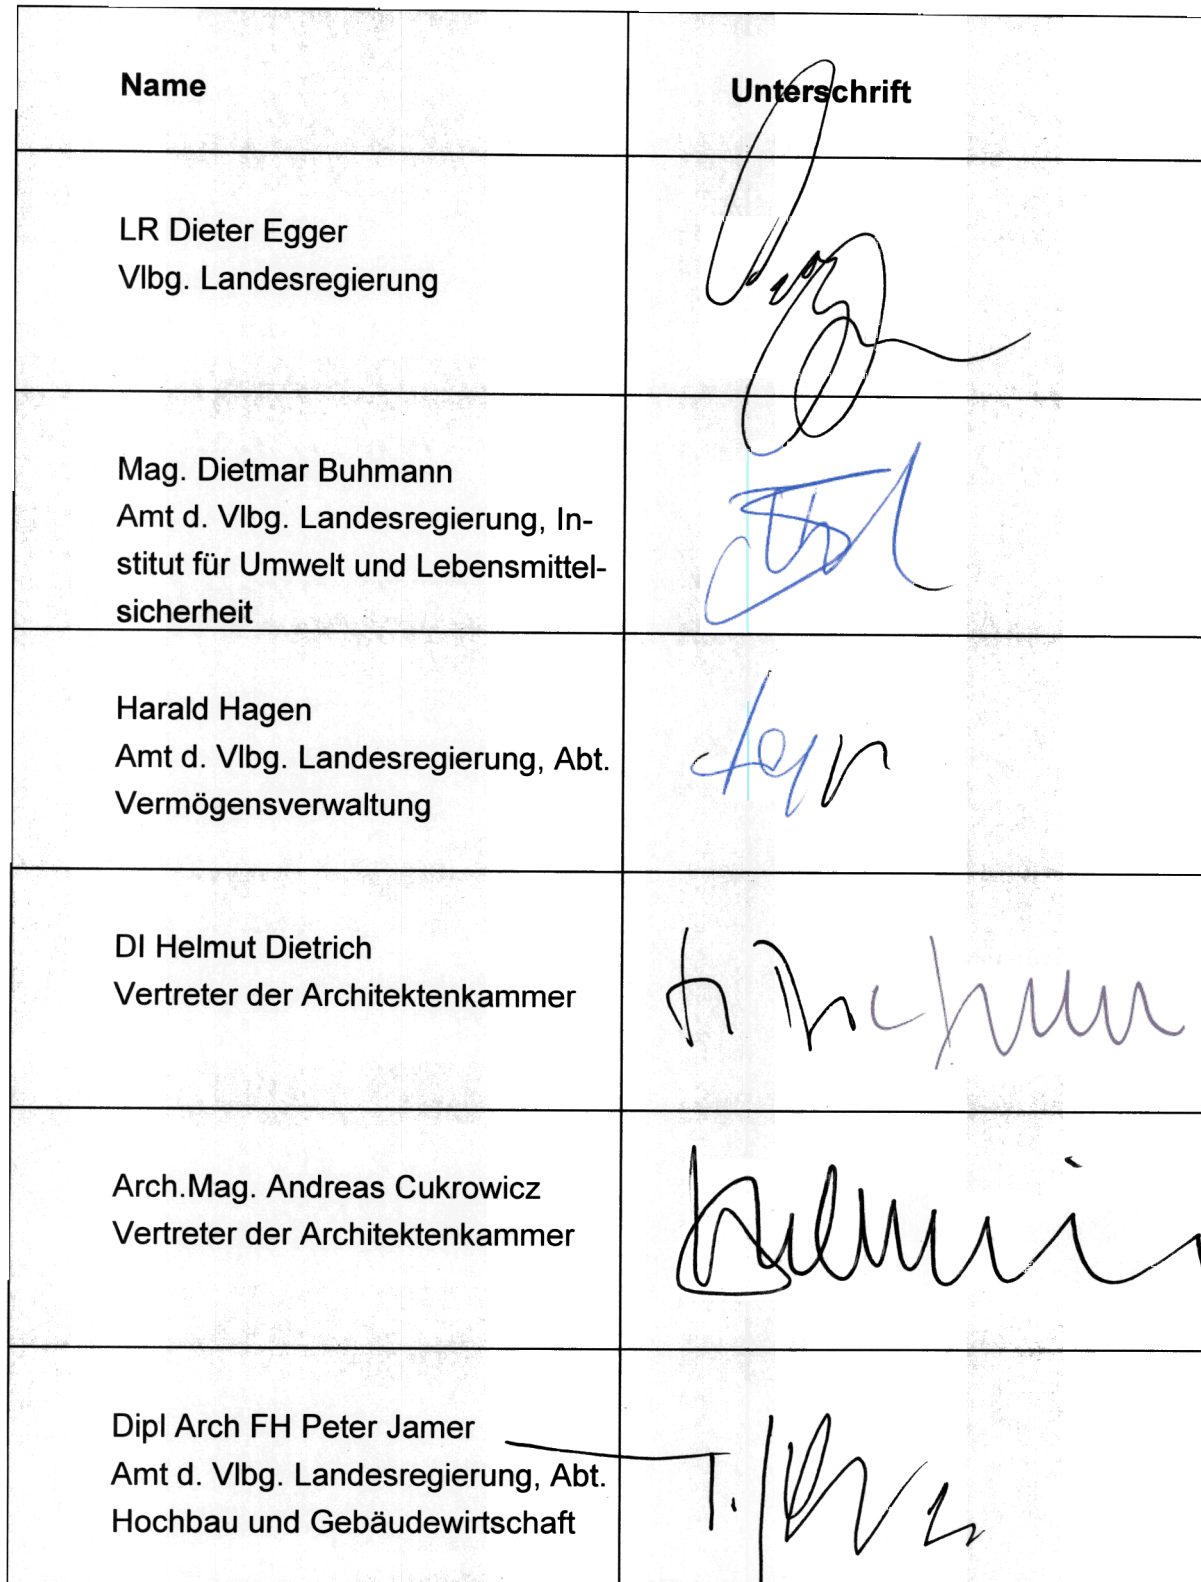 Name
Unterschrift
LR Dieter Egger
Vlbg. Landesregierung
Mag. Dietmar Buhmann
Amt d. Vlbg. Landesregierung, In-
stitut für Umwelt und Lebensmittel-
sicherheit
Harald Hagen
Amt d. Vlbg. Landesregierung, Abt.
Vermögensverwaltung
DI Helmut Dietrich
Vertreter der Architektenkammer
Arch.Mag. Andreas Cukrowicz
Vertreter der Architektenkammer
Dipl Arch FH Peter Jamer
Amt d. Vlbg. Landesregierung, Abt.
Hochbau und Gebäudewirtschaft